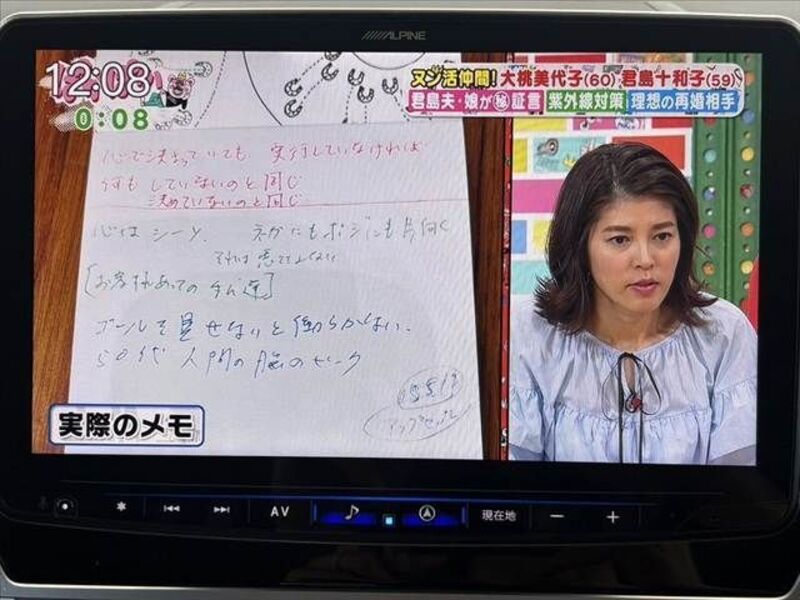 ALPINE
12:08
0:08
ヌン活仲間!大桃美代子(60),君島十和子(59)
君島夫・娘が㊙証言 紫外線対策 理想の再婚相手
心で決まっていても、実行していなければ
何もしていないのと同じ
決めていないのと同じ
心はシーソー、ネガにもポジにも片向く
[お客様あっての私達]
ゴールを見せないと働らかない。
50代 人間の脳のピーク
アップセット
実際のメモ
AV
現在地